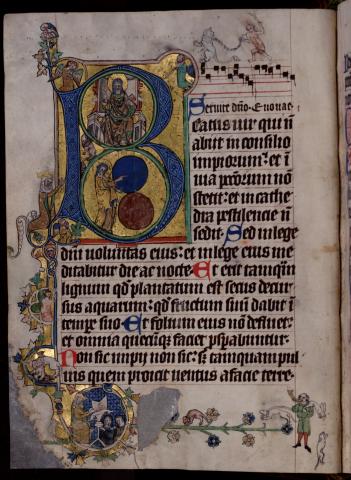 Seruite dño. Euouae.
B
eatus uir qui ñ
abiit in consilio
impiorum: et ĩ
uia pcõrum nõ
stetit: et in cathe
dra pestilencie ñ
sedit. Sed in lege
dñi uoluntas eius: et in lege eius me
ditabitur die ac nocte. Et erit tamqm̃
lignum qd plantatum est secus decur
sus aquarum: qd fructum suũ dabit ĩ
tempe suo. Et folium eius nõ defluet:
et omnia quecũqꝫ faciet pspabuntur.
Non sic impij non sic: sꝫ tamquam pul
uis quem proicit uentus a facie terre.